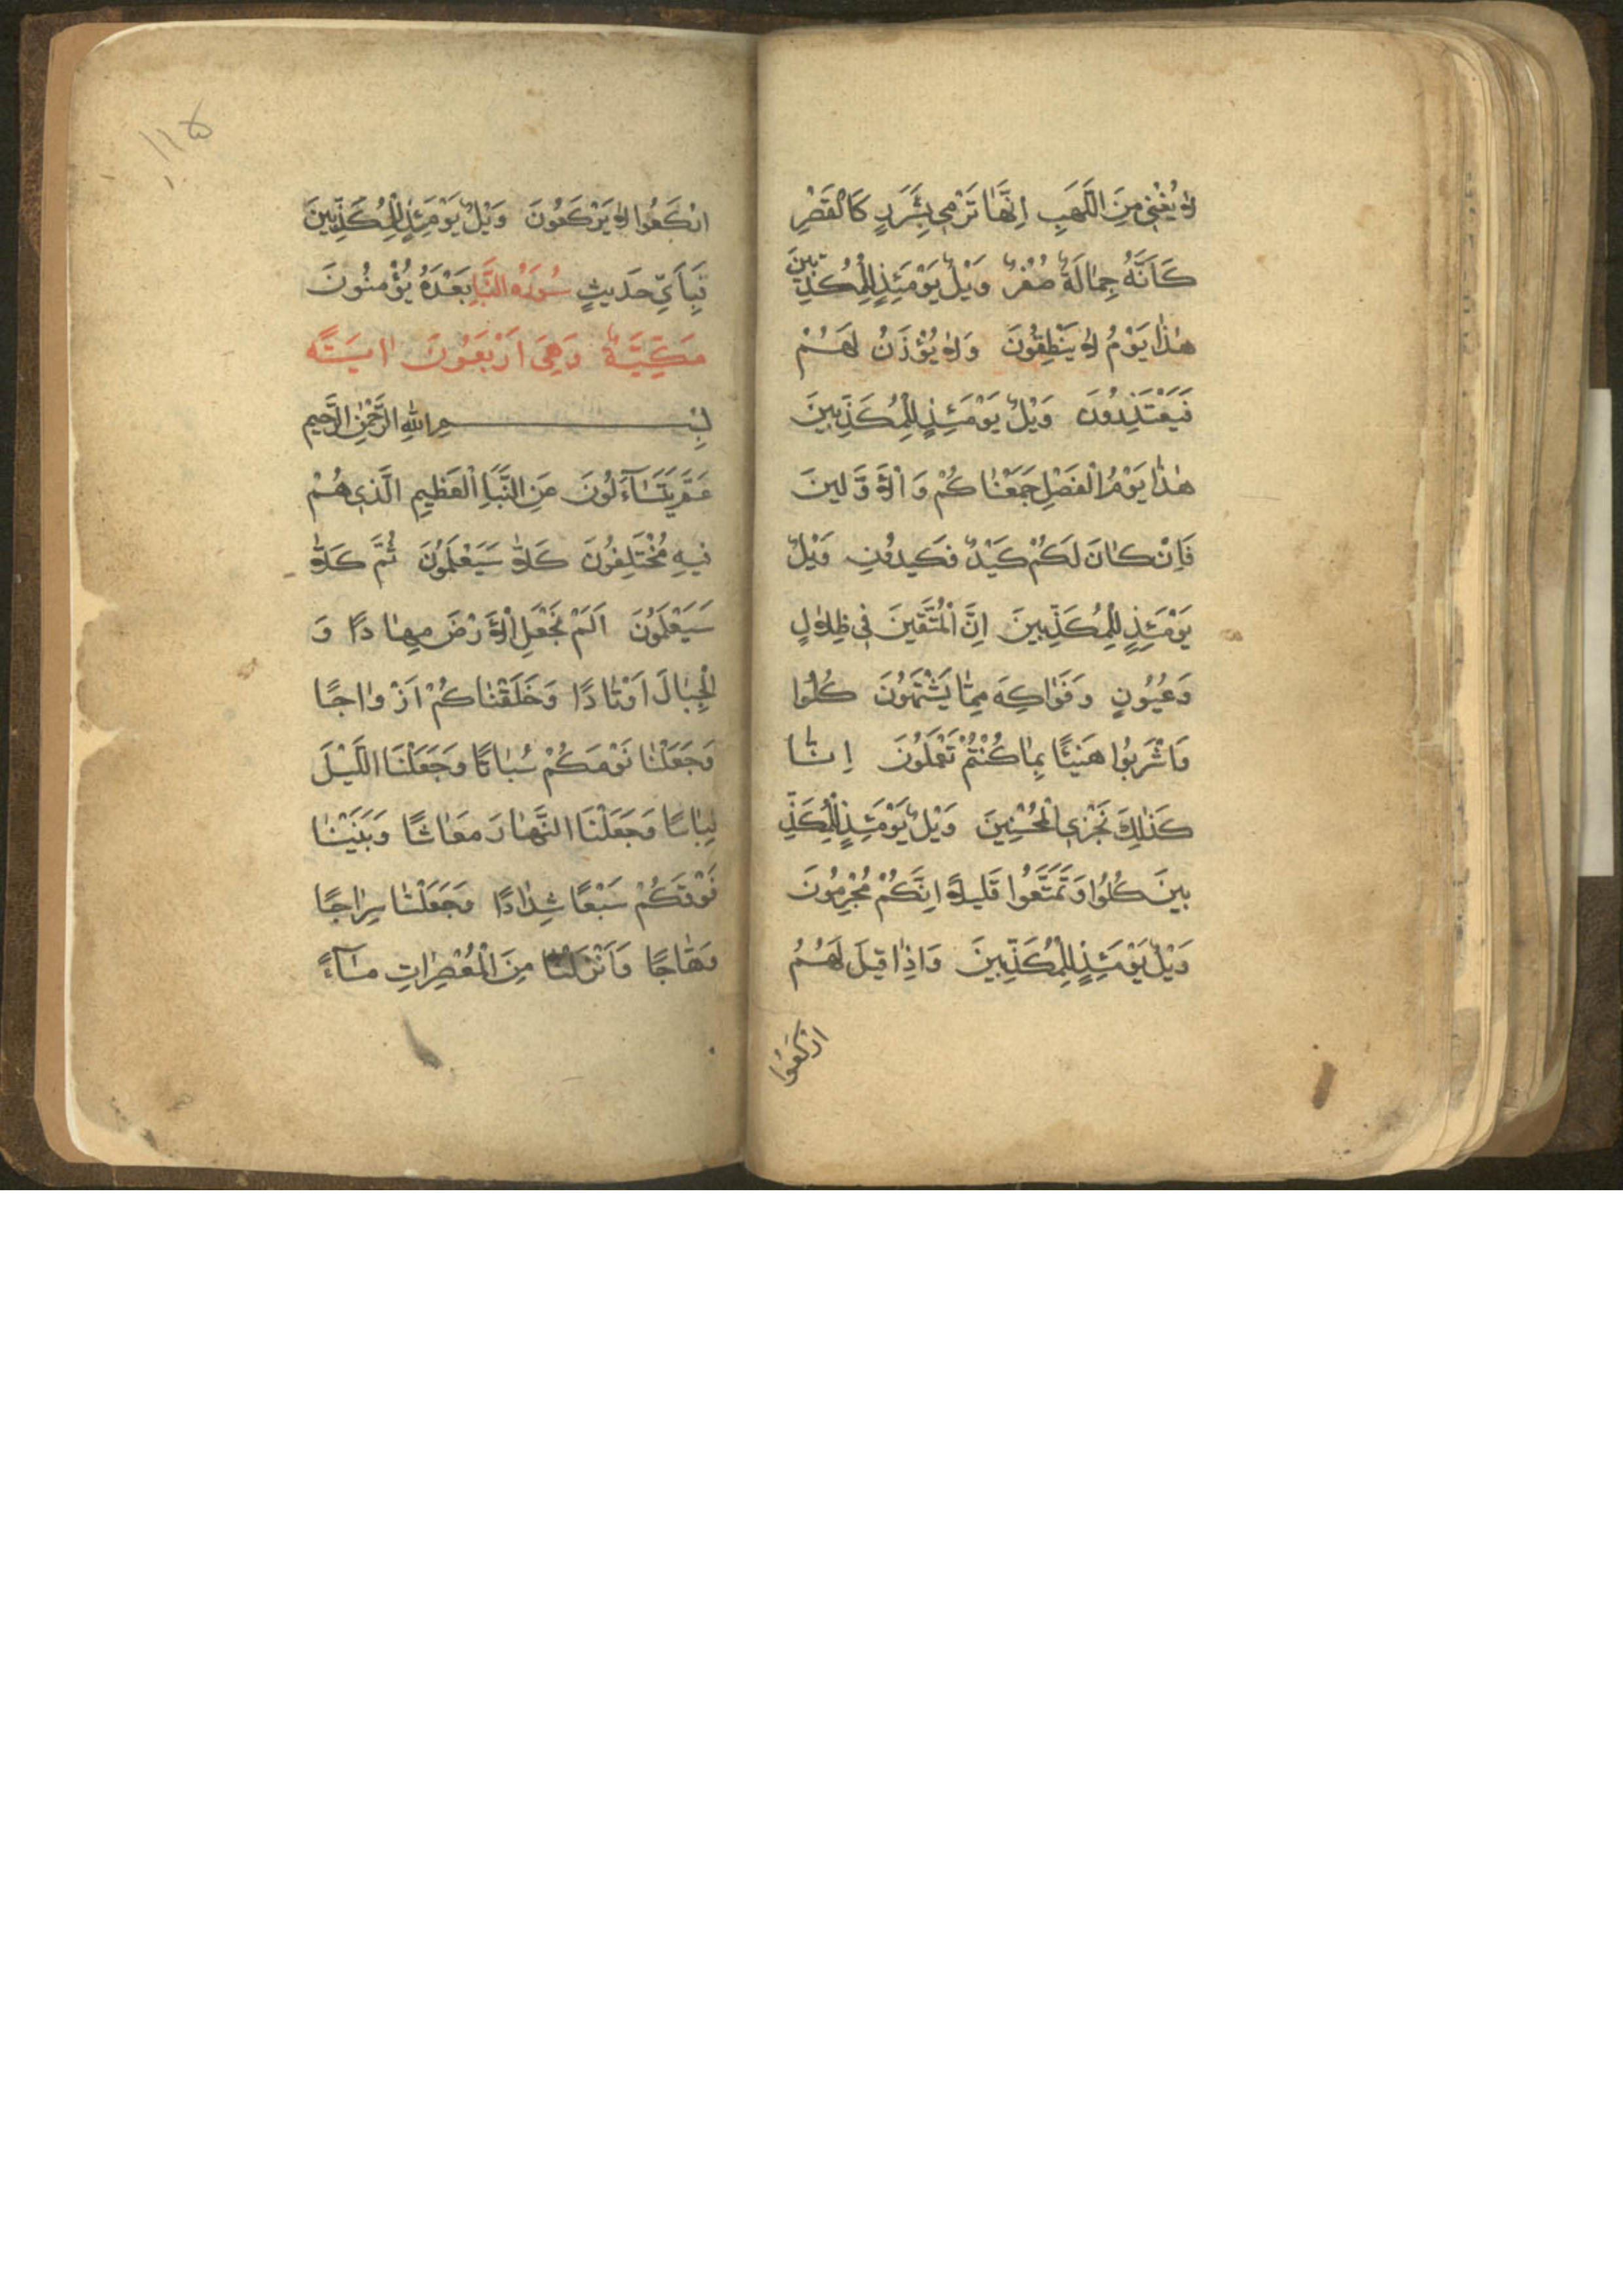 لَا يُغْنِي مِنَ اللَّهَبِ اِنَّهَا تَرْمِي بِشَرَرٍ كَالْقَصْرِ
كَاَنَّهُ جِمَالَةٌ صُفْرٌ وَيْلٌ يَوْمَئِذٍ لِلْمُكَذِّبِينَ
هٰذَا يَوْمُ لَا يَنْطِقُونَ وَلَا يُؤْذَنُ لَهُمْ
فَيَعْتَذِرُونَ وَيْلٌ يَوْمَئِذٍ لِلْمُكَذِّبِينَ
هٰذَا يَوْمُ الْفَصْلِ جَمَعْنَاكُمْ وَالْاَوَّلِينَ
فَاِنْ كَانَ لَكُمْ كَيْدٌ فَكِيدُونِ وَيْلٌ
يَوْمَئِذٍ لِلْمُكَذِّبِينَ اِنَّ الْمُتَّقِينَ فِي ظِلَالٍ
وَعُيُونٍ وَفَوَاكِهَ مِمَّا يَشْتَهُونَ كُلُوا
وَاشْرَبُوا هَنِيئًا بِمَا كُنْتُمْ تَعْمَلُونَ اِنَّا
كَذٰلِكَ نَجْزِي الْمُحْسِنِينَ وَيْلٌ يَوْمَئِذٍ لِلْمُكَذِّ
بِينَ كُلُوا وَتَمَتَّعُوا قَلِيلًا اِنَّكُمْ مُجْرِمُونَ
وَيْلٌ يَوْمَئِذٍ لِلْمُكَذِّبِينَ وَاِذَا قِيلَ لَهُمُ
ارْكَعُوا
١١٥
ارْكَعُوا لَا يَرْكَعُونَ وَيْلٌ يَوْمَئِذٍ لِلْمُكَذِّبِينَ
فَبِاَيِّ حَدِيثٍ سُورَةُ النَّبَاِ بَعْدَهُ يُؤْمِنُونَ
مَكِّيَّةٌ وَهِيَ اَرْبَعُونَ اٰيَةً
بِسْمِ اللّٰهِ الرَّحْمٰنِ الرَّحِيمِ
عَمَّ يَتَسَآءَلُونَ عَنِ النَّبَاِ الْعَظِيمِ الَّذِي هُمْ
فِيهِ مُخْتَلِفُونَ كَلَّا سَيَعْلَمُونَ ثُمَّ كَلَّا
سَيَعْلَمُونَ اَلَمْ نَجْعَلِ الْاَرْضَ مِهَادًا وَ
الْجِبَالَ اَوْتَادًا وَخَلَقْنَاكُمْ اَزْوَاجًا
وَجَعَلْنَا نَوْمَكُمْ سُبَاتًا وَجَعَلْنَا اللَّيْلَ
لِبَاسًا وَجَعَلْنَا النَّهَارَ مَعَاشًا وَبَنَيْنَا
فَوْقَكُمْ سَبْعًا شِدَادًا وَجَعَلْنَا سِرَاجًا
وَهَّاجًا وَاَنْزَلْنَا مِنَ الْمُعْصِرَاتِ مَآءً